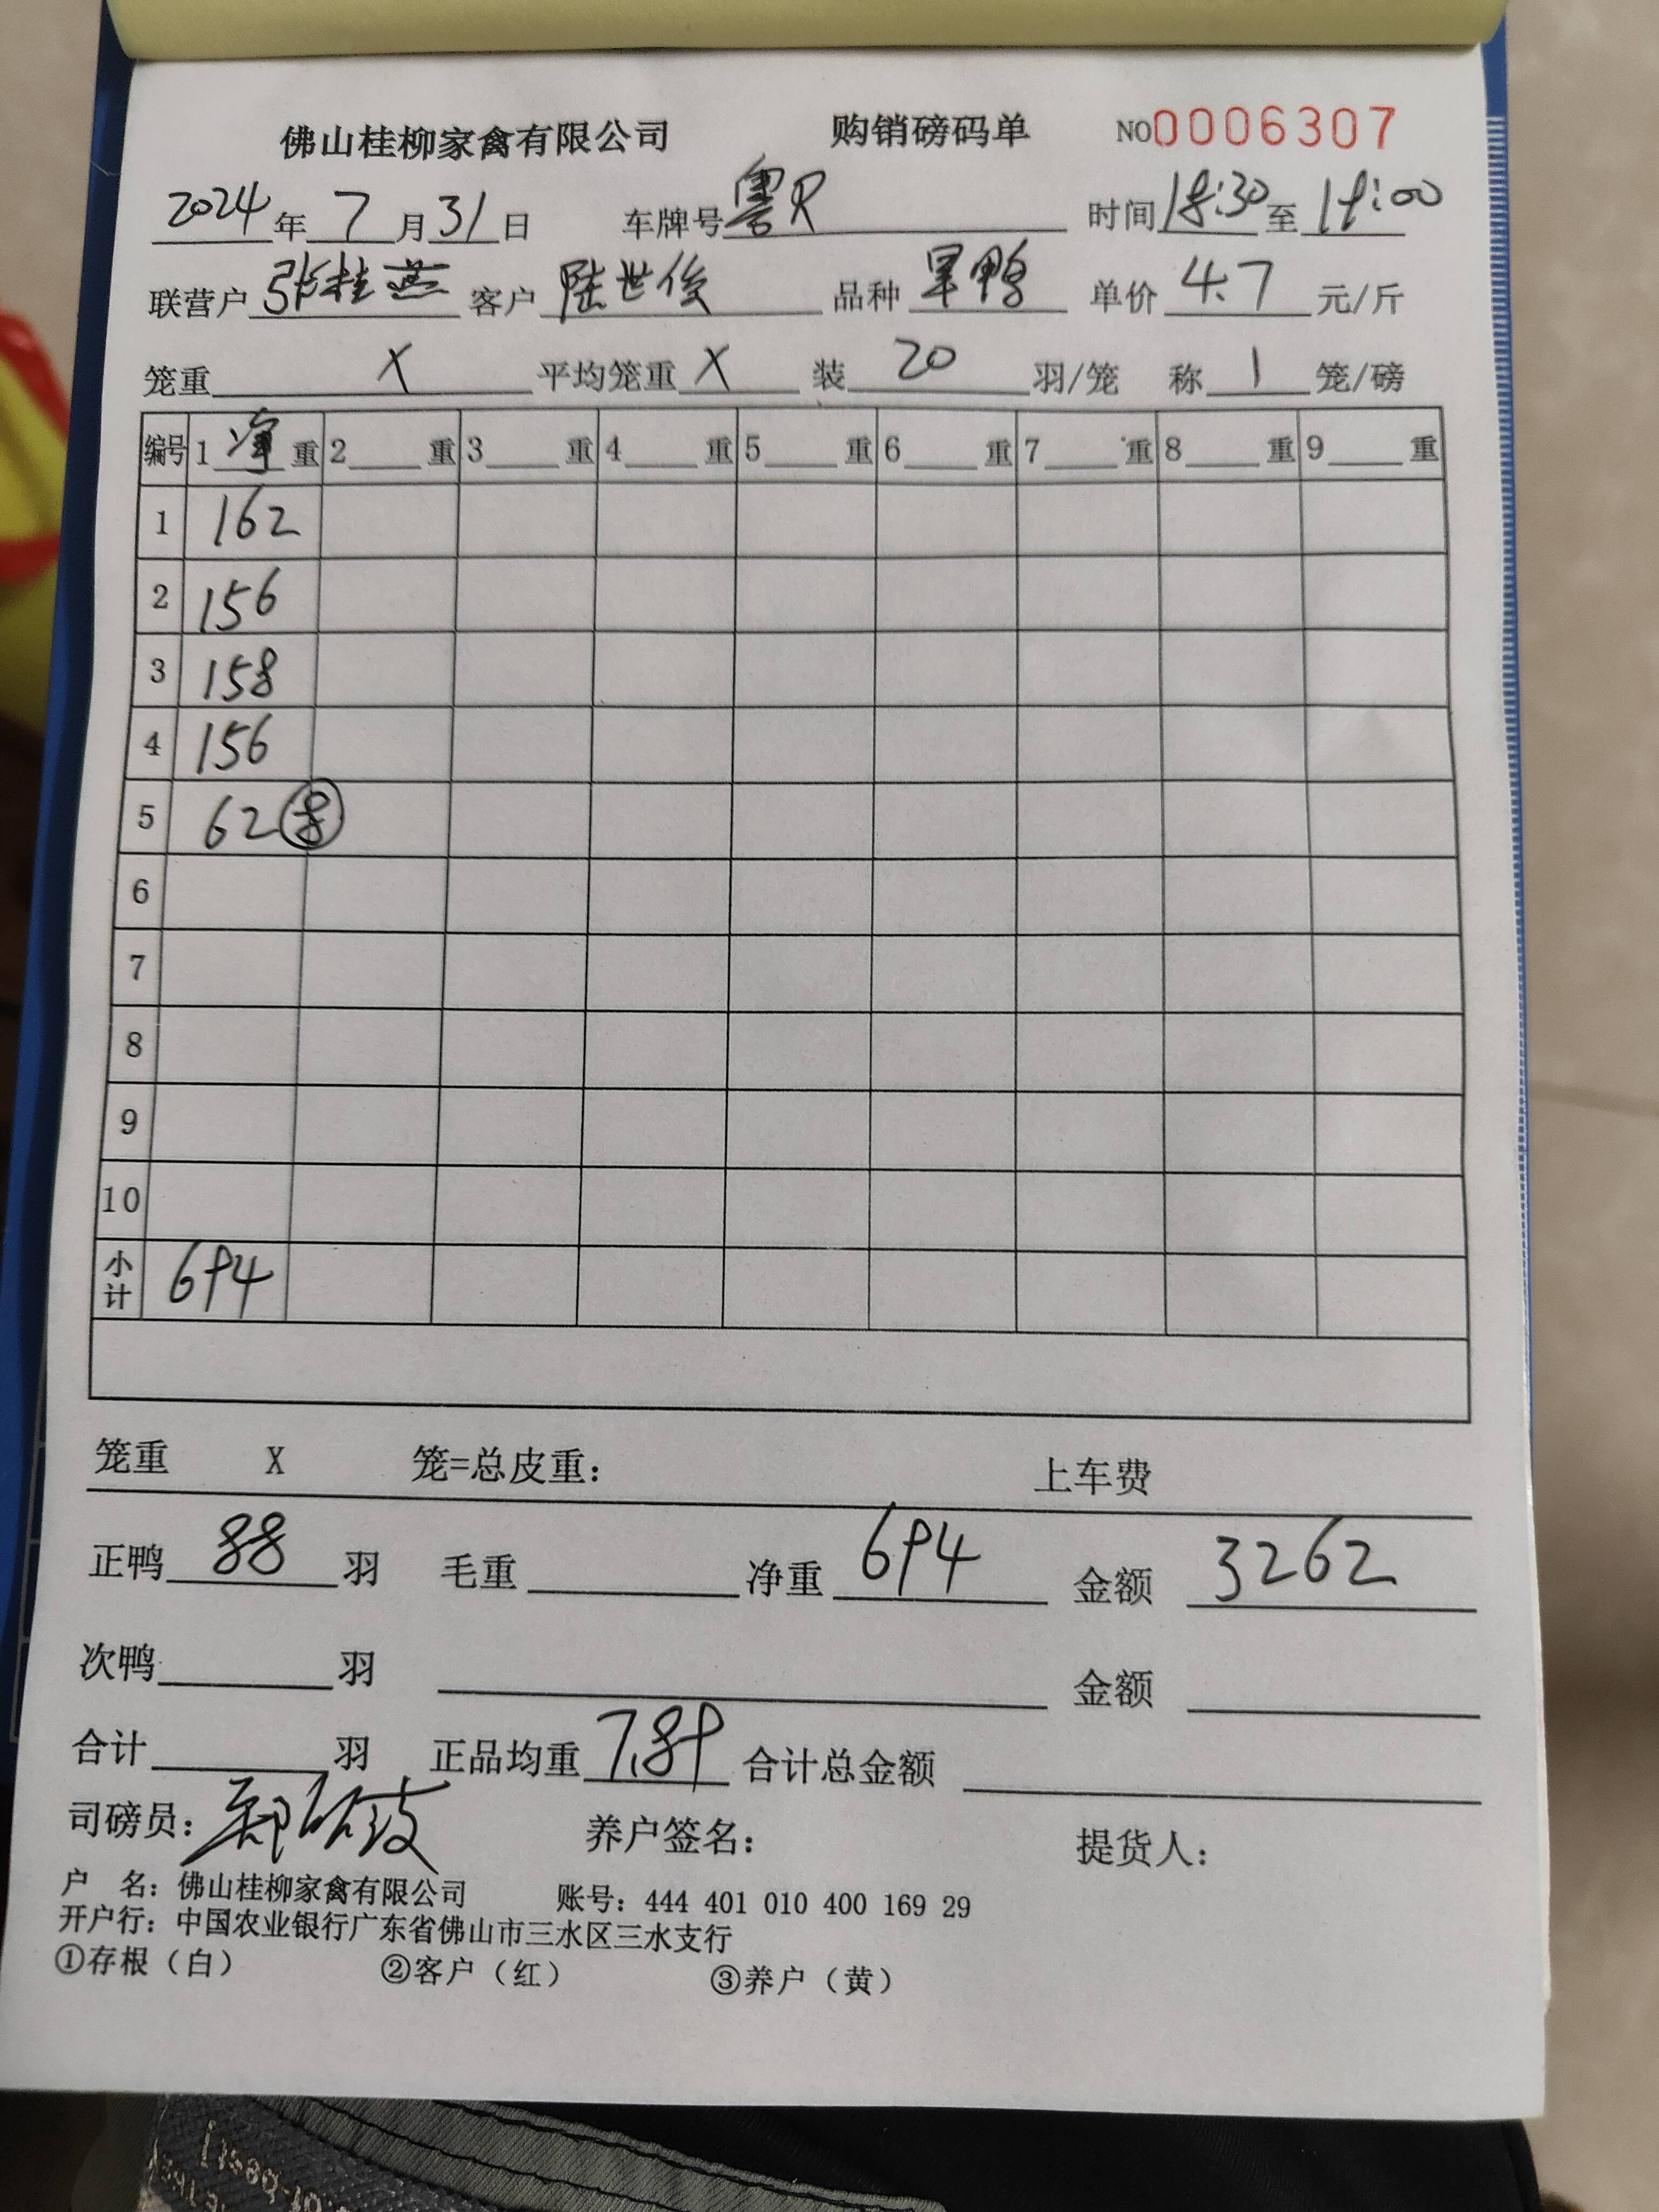 佛山桂柳家禽有限公司 购销磅码单 NO0006307
2024年7月31日 车牌号粤R 时间18:30至19:00
联营户张桂燕 客户陆世俊 品种旱鸭 单价4.7元/斤
笼重X 平均笼重X 装20羽/笼 称1笼/磅
编号 1净重 2重 3重 4重 5重 6重 7重 8重 9重
1 162
2 156
3 158
4 156
5 62⑧
6
7
8
9
10
小计 694
笼重 X 笼=总皮重: 上车费
正鸭88羽 毛重 净重694 金额3262
次鸭 羽 金额
合计 羽 正品均重7.89 合计总金额
司磅员: 养户签名: 提货人:
户 名: 佛山桂柳家禽有限公司 账号: 444 401 010 400 169 29
开户行: 中国农业银行广东省佛山市三水区三水支行
①存根（白） ②客户（红） ③养户（黄）